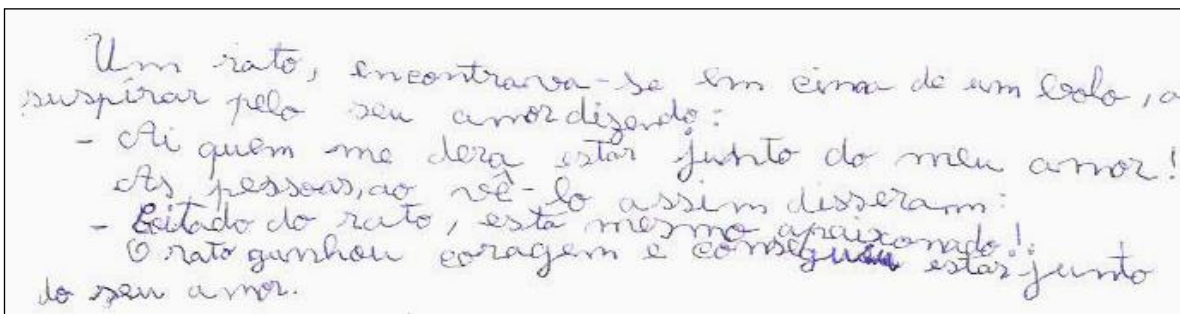 Um rato, encontrava-se em cima de um bolo, a
suspirar pelo seu amor dizendo:
- Ai quem me dera estar junto do meu amor!
As pessoas, ao vê-lo assim disseram:
- Coitado do rato, está mesmo apaixonado!
O rato ganhou coragem e conseguiu estar junto
do seu amor.